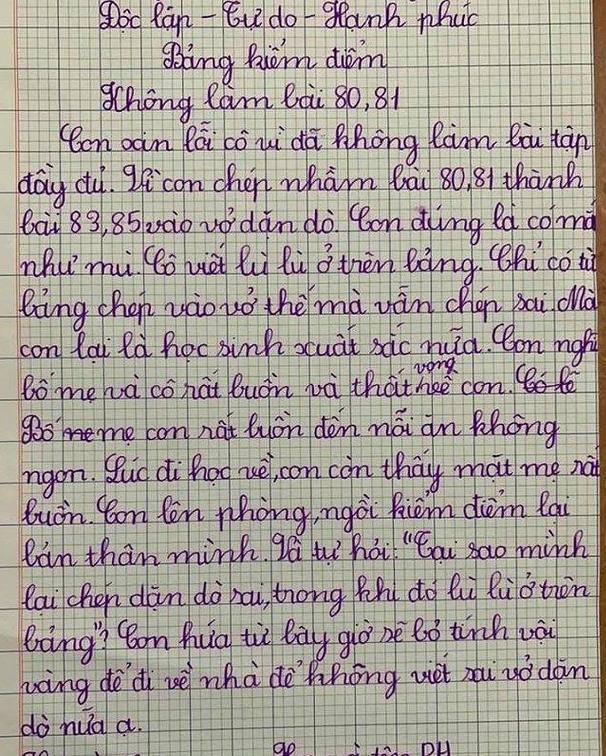 Độc lập - Tự do - Hạnh phúc
Bảng kiểm điểm
Không làm bài 80,81
Con xin lỗi cô vì đã không làm bài tập
đầy đủ. Vì con chép nhầm bài 80,81 thành
bài 83,85 vào vở dặn dò. Con đúng là có mắ
như mù. Cô viết lù lù ở trên bảng. Chỉ có từ
bảng chép vào vở thế mà vẫn chép sai. Mà
con lại là học sinh xuất sắc nữa. Con nghĩ
bố mẹ và cô rất buồn và thất vọng con.
Bố mẹ con rất buồn đến nỗi ăn không
ngon. Lúc đi học về, con còn thấy mặt mẹ rất
buồn. Con lên phòng, ngồi kiểm điểm lại
bản thân mình. Và tự hỏi: "Tại sao mình
lại chép dặn dò sai, trong khi đó lù lù ở trên
bảng"? Con hứa từ bây giờ sẽ bỏ tính vội
vàng để đi về nhà để không viết sai vở dặn
dò nữa ạ.
PH